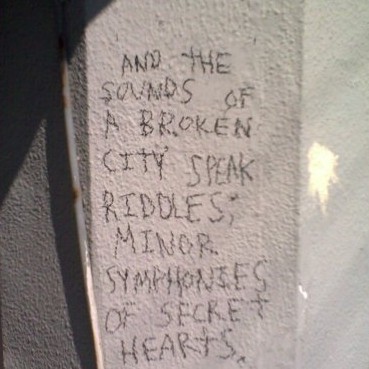 AND THE
SOUNDS OF
A BROKEN
CITY SPEAK
RIDDLES;
MINOR
SYMPHONIES
OF SECRET
HEARTS.